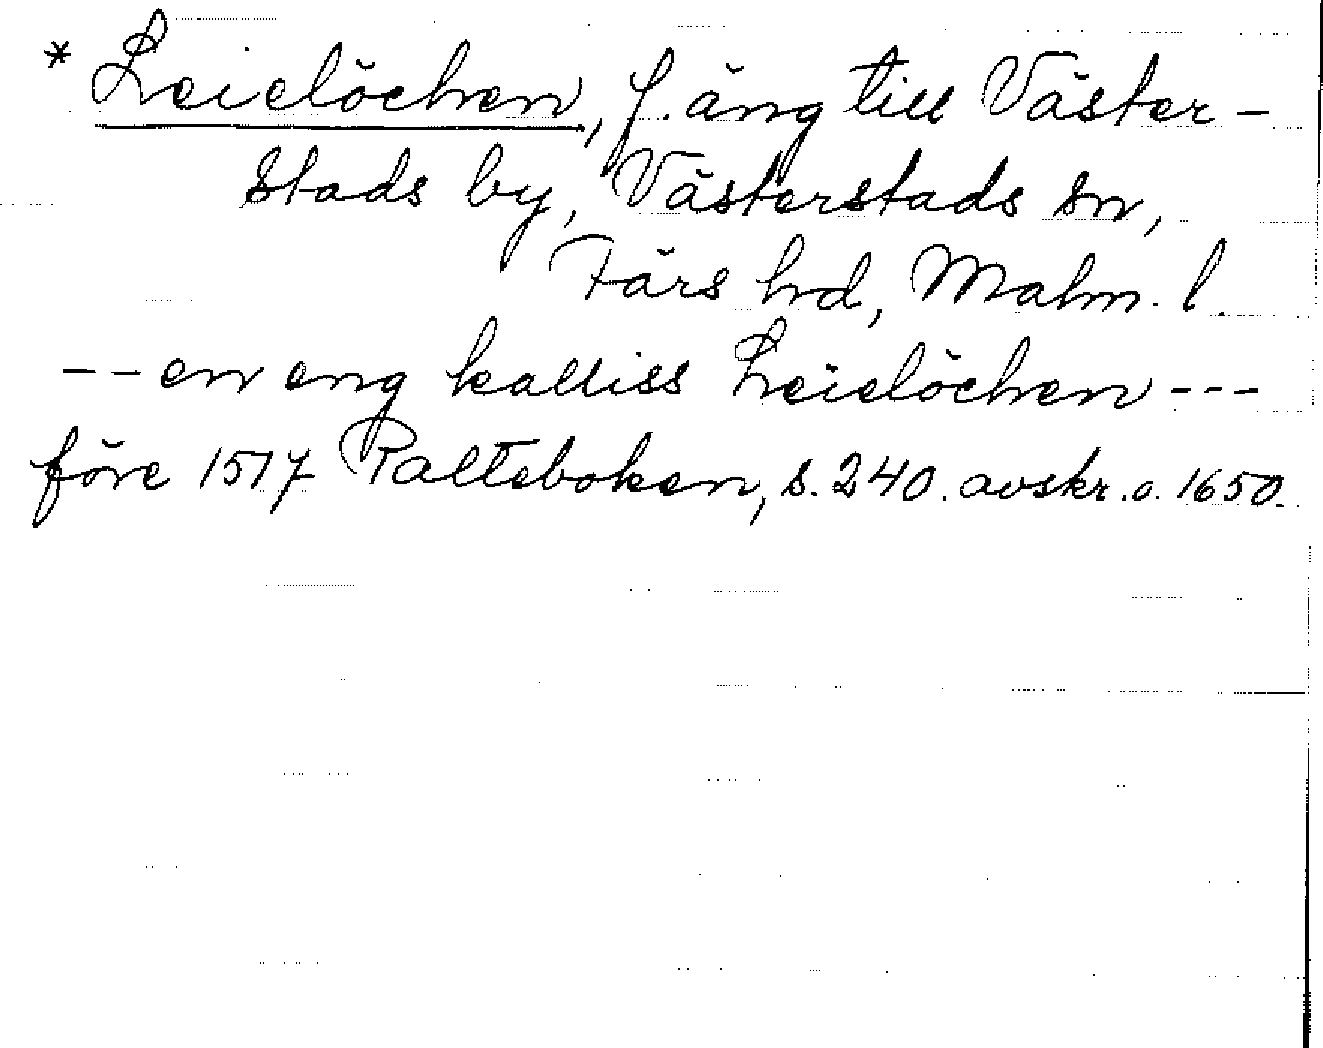 * Leielöchen, f. äng till Väster-
stads by, Västerstads sn,
Färs hd, Malm. l.
-- en eng kalliss Leielöchen ---
före 1517 Palteboken, s. 240. avskr. o. 1650.